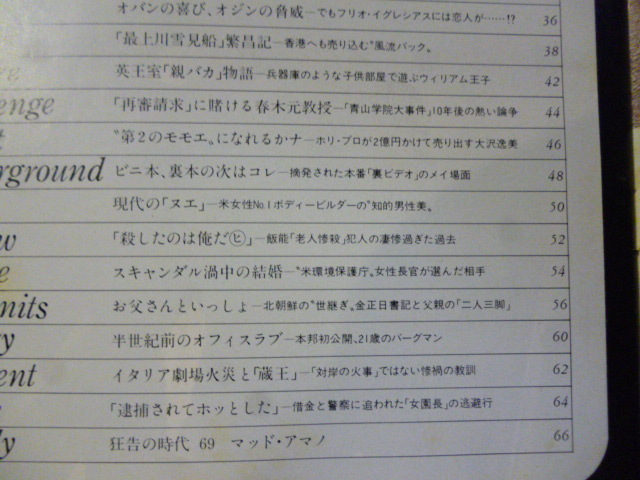 オバンの喜び、オジンの脅威―でもフリオ・イグレシアスには恋人が……!? 36
「最上川雪見船」繁昌記―香港へも売り込む"風流パック〟 38
英王室「親バカ」物語―兵器庫のような子供部屋で遊ぶウィリアム王子 42
enge 「再審請求」に賭ける春木元教授―「青山学院大事件」10年後の熱い論争 44
t "第2のモモエ〟になれるかナ―ホリ・プロが2億円かけて売り出す大沢逸美 46
rground ビニ本、裏本の次はコレ―摘発された本番「裏ビデオ」のメイ場面 48
現代の「ヌエ」―米女性No.1ボディービルダーの"知的男性美〟 50
w 「殺したのは俺だ㋪」―飯能「老人惨殺」犯人の凄惨過ぎた過去 52
e スキャンダル渦中の結婚―"米環境保護庁〟女性長官が選んだ相手 54
mits お父さんといっしょ―北朝鮮の"世継ぎ〟金正日書記と父親の「二人三脚」 56
y 半世紀前のオフィスラブ―本邦初公開、21歳のバーグマン 60
ent イタリア劇場火災と「蔵王」―「対岸の火事」ではない惨禍の教訓 62
「逮捕されてホッとした」―借金と警察に追われた「女園長」の逃避行 64
ly 狂告の時代 69 マッド・アマノ 66